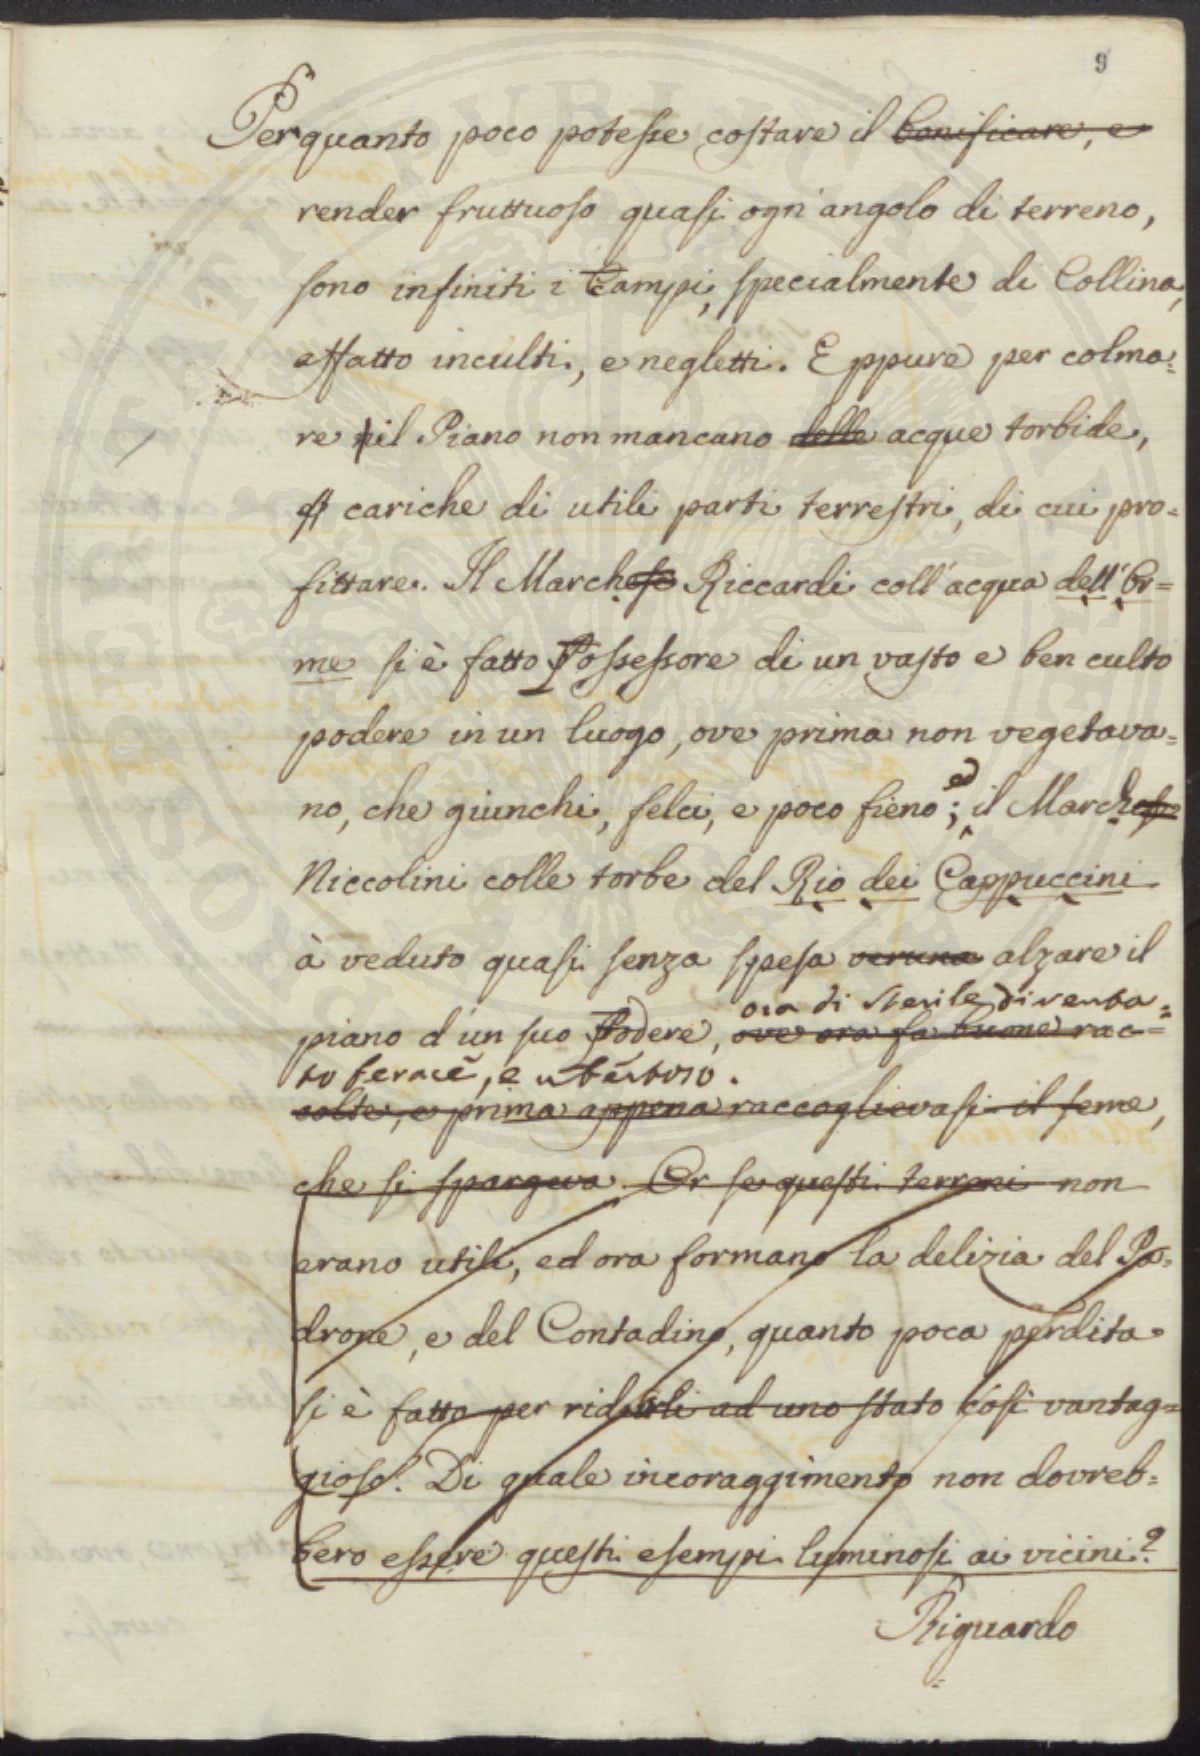 9
Perquanto poco potesse costare il bonificare, e
render fruttuoso quasi ogn'angolo di terreno,
sono infiniti i Campi, specialmente di Collina,
affatto inculti, e negletti. Eppure per colma=
re il Piano non mancano delle acque torbide,
cariche di utili parti terrestri, di cui pro=
fittare. Il Marchese Riccardi coll'acqua dell'Or=
me si è fatto Possessore di un vasto e ben culto
podere in un luogo, ove prima non vegetava=
no, che giunchi, felci, e poco fieno; ed il Marchese
Niccolini colle torbe del Rio dei Cappuccini
à veduto quasi senza spesa veruna alzare il
ora di sterile diventa=
piano d'un suo Podere, ove ora fa buone rac=
to ferace, e ubertoso.
colte, e prima appena raccoglievasi il seme,
che si spargeva. Or se questi terreni non
erano utili, ed ora formano la delizia del Pa=
drone, e del Contadino, quanto poca perdita
si è fatto per ridurli ad uno stato così vantag=
gioso! Di quale incoraggimento non dovreb=
bero essere questi esempi luminosi ai vicini?
Riguardo